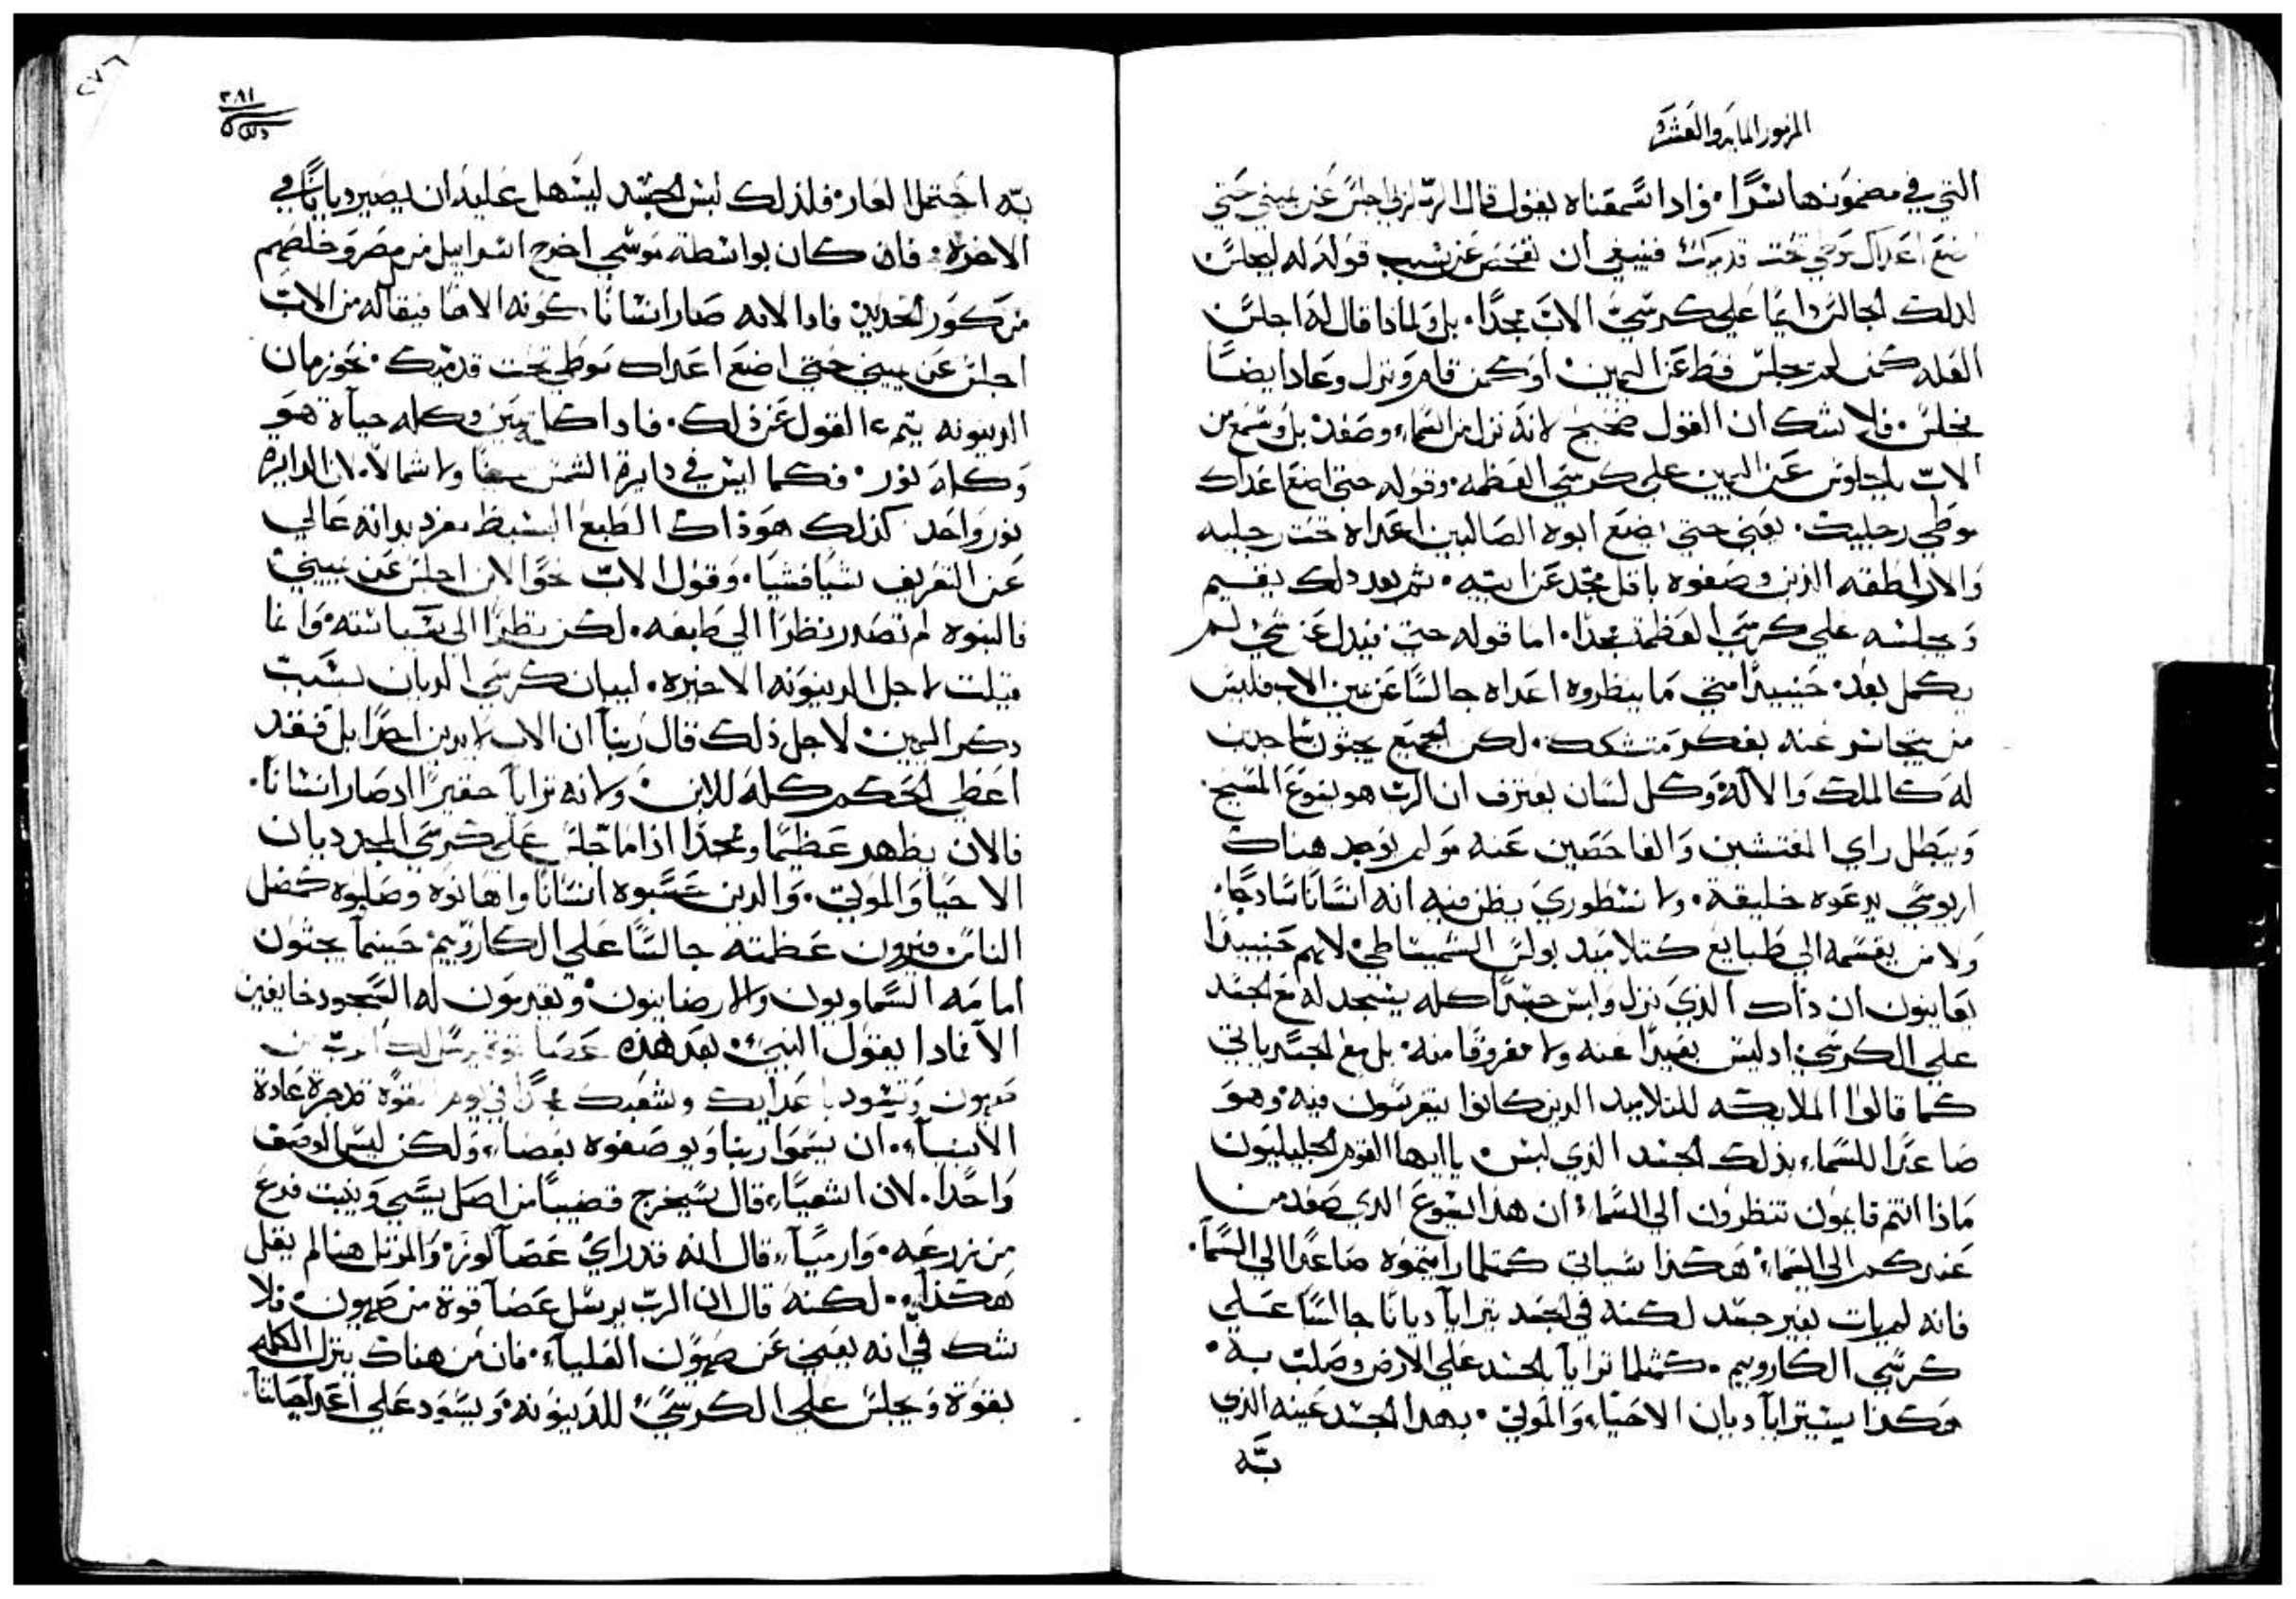 المزمور المايه والعشره
التي في مضمونها سرًا. واذا سمعناه يقول قال الرب لربي اجلس عن يميني حتي
اضع اعداك موطي تحت قدميك فينبغي ان نفحص عن سبب قوله له ليجلس
لذلك الجالس دايمًا علي كرسي الاب مجدًا. بل ولماذا قال له اجلس
العله كمن لم يجلس قط عن اليمين، او كمن قام ونزل وعاد ايضًا
يجلس. فلا شك ان القول صحيح لانه نزل من السماء وصعد بل وسمع من
الاب بالجلوس عن اليمين علي كرسي العظمه. وقوله حتي اضع اعداك
موطي رجليك. يعني حتي يضع ابوه الصالبين اعداه تحت رجليه
والاراطقه الذين وضعوه باقل مجد عن ابيه. ثم بعد ذلك يقيم
ويجلسه علي كرسي العظمة مجدًا. اما قوله حتي فيدل عن شي لم
يكمل بعد. حينيدًا متي ما ينظروه اعداه جالسًا عن يمين الاب فليس
من يتحاسر عنه بفكر متشكك. لكن الجميع يجثون ساجدين
له كالملك والالاه وكل لسان يعترف ان الرب هو يسوع المسيح.
ويبطل راي المفتشين والفاحصين عنه ولم يوجد هناك
اريوسي يدعوه خليقة. ولا نسطوري يظن فيه انه انسانًا سادجًا.
ولا من يقسمه الي طبايع كتلاميد بولس السميساطي لانهم حينيدًا
يعاينون ان ذاك الذي نزل ولبس جسدًا كله يسجد له مع الجسد
علي الكرسي. اد ليس بعيدًا عنه ولا مفروقًا منه. بل مع الجسد ياتي
كما قالوا الملايكه للتلاميد الدين كانوا يتفرسون فيه وهو
صاعدًا للسماء بذلك الجسد الذي لبس يا ايها القوم الجليليون
ماذا انتم قايمون تنظرون الي السماء ان هذا يسوع الدي صعد من
عندكم الي السماء هكذا سياتي كمتلما رايتموه صاعدًا الي السماء.
فانه لم يات بغير جسد لكنه في الجسد يترايا ديانًا جالسًا علي
كرسي الكاروبيم. كمثلما ترايا بالجسد علي الارض وصلب به.
وكذا سيترايا ديان الاحياء والموتي. بهدا الجسد عينه الذي
به
٣٨١
به احتمل العار. فلذلك لبس الجسد ليسهل عليه ان يصير ديانًا في
الاخره. فان كان بواسطة موسي اخرج اسراييل من مصر وخلصهم
من كور الحديد فادا الاله صار انسانًا. كونه الاهًا فيقال له من الاب
اجلس عن يميني حتي اضع اعداك موطي تحت قدميك. نحو زمان
الدينونه يتم القول عن ذلك. فادا كله يمين وكله حياة هو
وكله نور. فكما ليس في دايرة الشمس يمينًا ولا شمالاً. لان الدايره
نور واحد كذلك هو ذاك الطبع البسيط بمزيد انه عالي
عن التعريف شيا فشيا. وقول الاب نحو الابن اجلس عن يميني
فالنبوه لم تصدر نظرًا الي طابعه. لكن نظرًا الي سياسته. وانما
قيلت لاجل الدينونه الاخيره. لبيان كرسي الديان بسبب
دكر اليمين. لاجل ذلك قال ربنا ان الاب لا يدين احدًا بل فقد
اعطي الحكم كله للابن. ولانه ترايا حقيرًا اد صار انسانًا.
فالان يظهر عظيمًا وممجدًا اذا ما جلس علي كرسي المجد ديان
الاحيا والموتي. والدين حسبوه انسانًا واهانوه وصلبوه كمضل
الناس فيرون عظمته جالسًا علي الكاروبيم حينما يجثون
امامه السماويون والارضانيون ويقدمون له السجود خايفين
الآ فادا يقول النبي بعد هذه عصا قوة يرسل لك الرب من
صهيون وتسود باعدايك وشعبك في يوم القوة قد جرة عادة
الانبياء. ان يسموا ربنا ويوصفوه بعصا. ولكن ليس الوصف
واحدًا. لان اشعيا قال سيخرج قضيبًا من اصل يسي وينبت فرع
من زرعه. وارميا قال انه قد راي عصا لوز. والمرتل هنا لم يقل
هكذا. لكنه قال ان الرب يرسل عصا قوة من صهيون. فلا
شك في انه يعني عن صهيون العلياء. فان من هناك ينزل الكلمه
بقوة ويجلس علي الكرسي للدينونه ويسود علي اعدايه